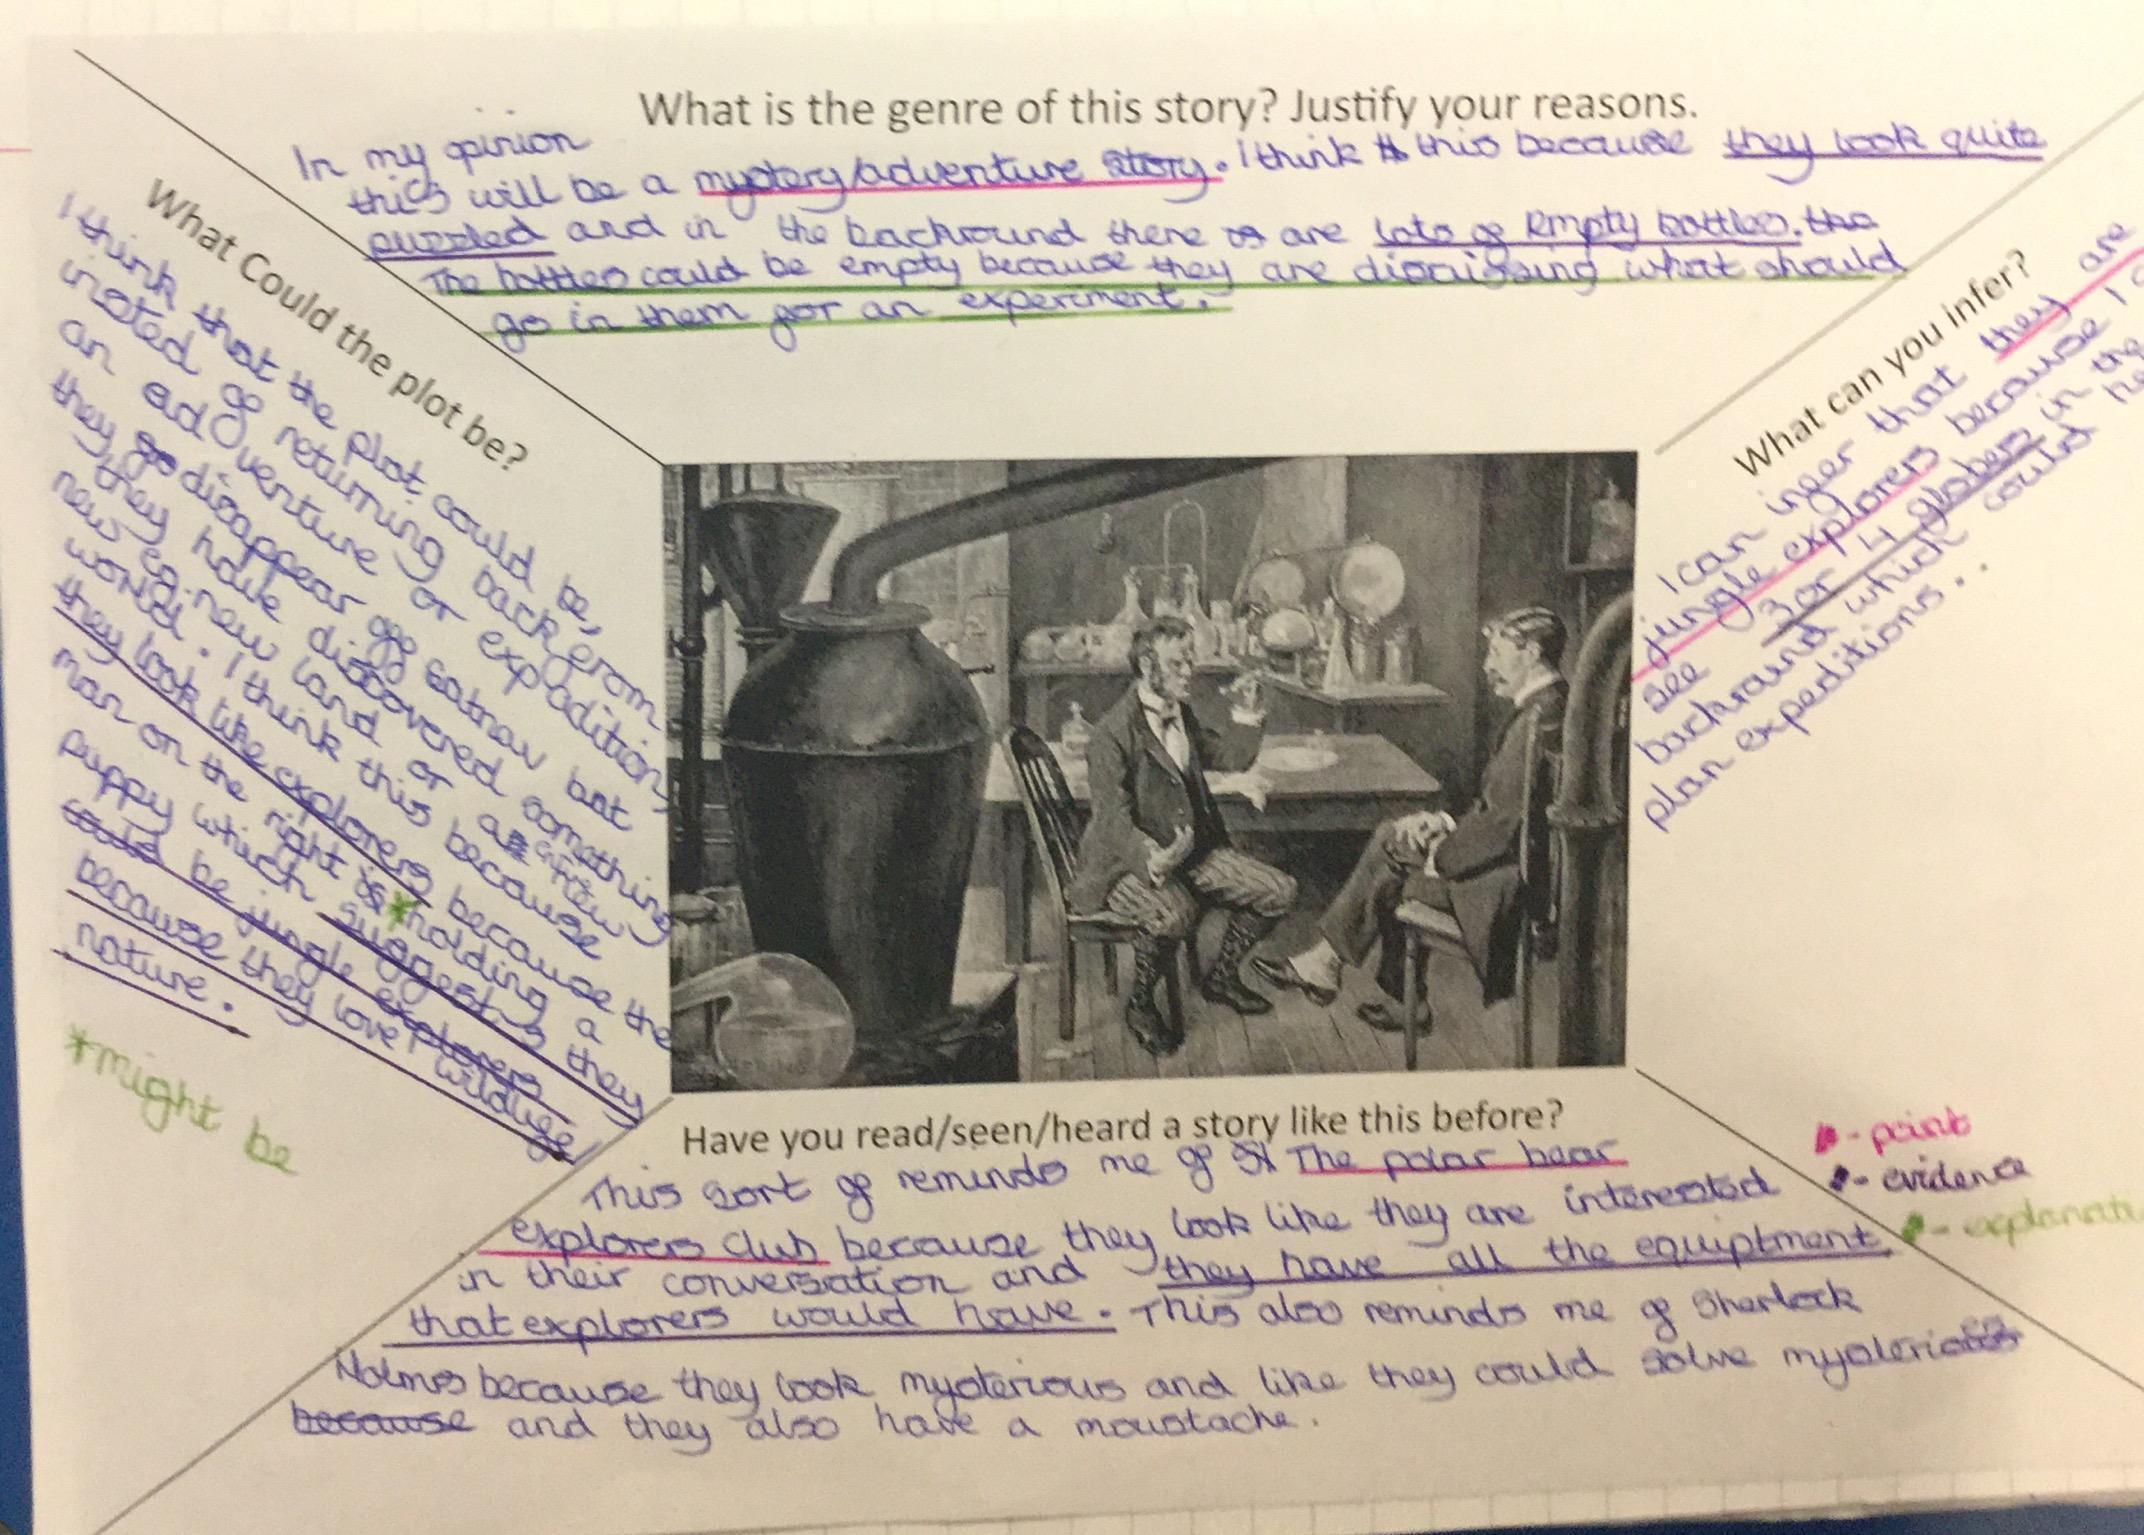 What is the genre of this story? Justify your reasons.
In my opinion
this will be a mystery/adventure story. I think this because they look quite
puzzled and in the backround there are lots of Empty bottles. the
The bottles could be empty because they are discussing what should
go in them for an experiment.
What Could the plot be?
I think that the plot could be,
insted of returning back from
an adventure or expadition,
they disappear off but
they have discovered something
new eg. new land or a new
world. I think this because
they look like explorers because the
man on the right * holding a
puppy which suggests they
could be jungle explorers
because they love wildlife
nature.
*might be
What can you infer?
I can infer that they are
jungle explorers because I
see 3 or 4 globes in the
backround which could
plan expeditions..
Have you read/seen/heard a story like this before?
This sort of reminds me of The polar bear
explorers club because they look like they are interested
in their conversation and they have all the equiptment
that explorers would have. This also reminds me of Sherlock
Holmes because they look mysterious and like they could solve
because and they also have a moustache.
- point
- evidence